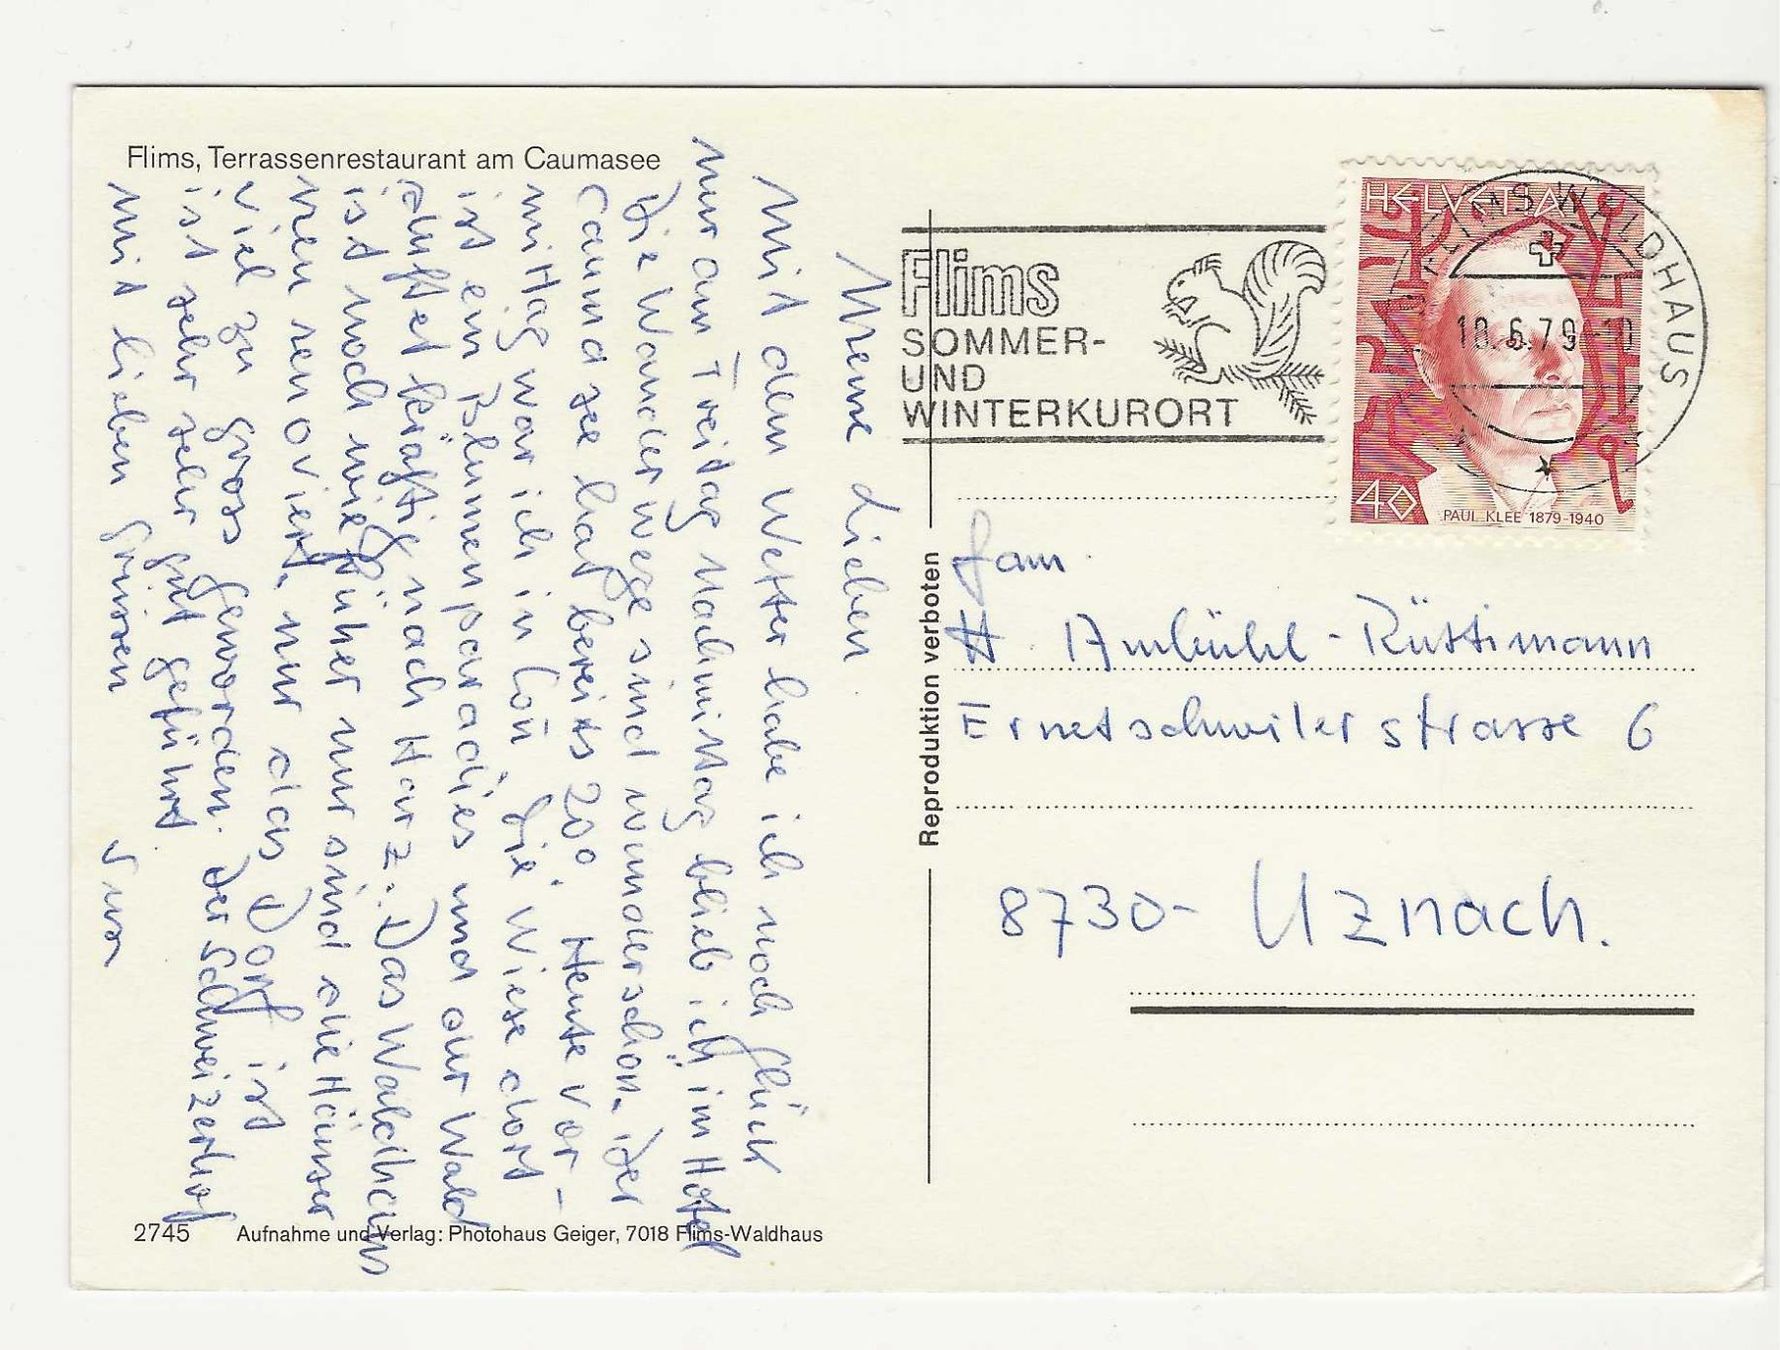 Flims, Terrassenrestaurant am Caumasee
Meine Lieben
Mit dem Wetter habe ich noch glück
nur am Freitag Nachmittag blieb ich im Hotel
Die Wanderwege sind wunderschön. Der
Caumasee hat bereits 20°. Heute Vor-
mittag war ich in Con. Die Wiese dort
ist ein Blumenparadies und der Wald
duftet kräftig nach Harz. Das Waldhaus
ist noch wie früher nur sind die Häuser
renoviert. nur das Dorf ist
viel zu gross geworden. Der Schweizerhof
ist sehr sehr gut geführt.
mit lieben Grüssen
2745 Aufnahme und Verlag: Photohaus Geiger, 7018 Flims-Waldhaus
Reproduktion verboten
Flims
SOMMER-
UND
WINTERKURORT
HELVETIA
FLIMS WALDHAUS
10.6.79-10
40
PAUL KLEE 1879-1940
Fam.
H. Ambühl-Rüttimann
Ernetschwilerstrasse 6
8730- Uznach.